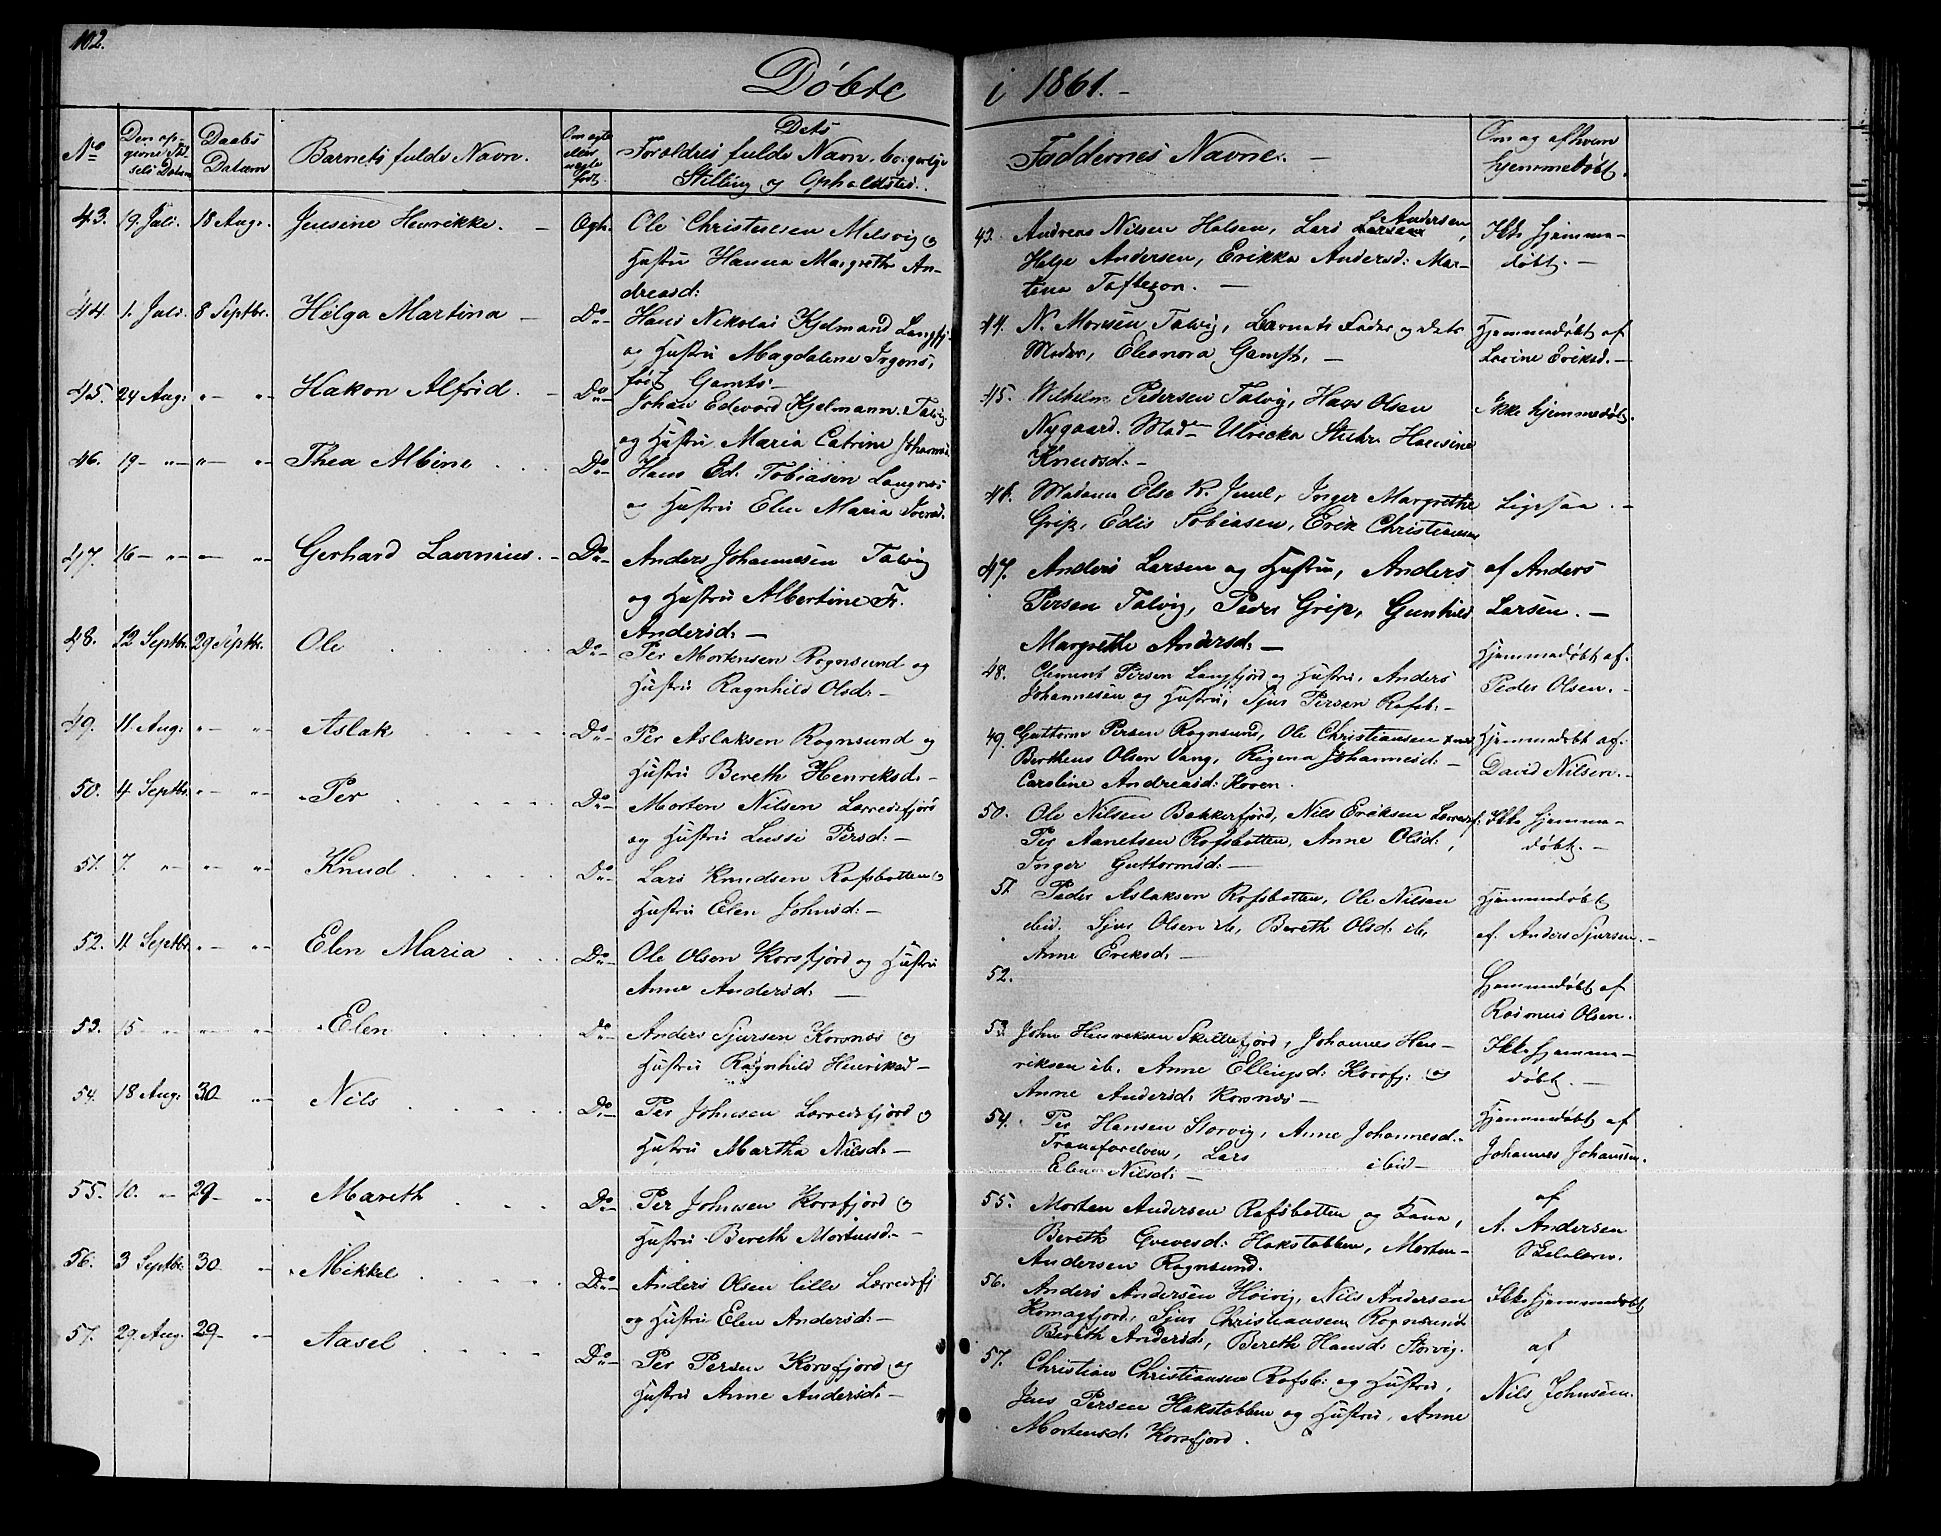 102.
Döbte i 1861.-
No
Den op-
givne Föd-
sels Datum
Daabs
Datum
Barnets fulde Navn.
Om ægte
eller
uægte
født.
Dets
Forældres fulde Navn, borgerlige
Stilling og Opholdssted.
43. 19. Juli. 18 Aug. Jensine Henrikke. - Ægte.
Ole Christensen Melsvig og
Hustru Hanna Margrethe An-
dreasd:
44. 1. Juli. 8 Septbr. Helga Martina - Do
Hans Nikolai Kjelmand Langfj.
og Hustru Magdalene
født Gamts.
45. 24 Aug: " " Hakon Alfrid. - Do
Johan Edevard Kjelmann, Talvig
og Hustru Maria Catrine Johannsd.
46. 19 - " " " Thea Albine . . . Do
Hans Ed. Tobiasen Langnæs
og Hustru Elen Maria Iversd.
47. 16 - " - " Gerhard Lavinius. - Do
Anders Johannesen Talvig
og Hustru Albertine Fr.
Andersd: -
48. 12 Septbr. 29 Septbr. Ole . . . Do
Per Mortensen Rognsund og
Hustru Ragnhild Olsdr -
49. 11. Aug: " " Aslak . . . Do
Per Aslaksen Rognsund og
Hustru Bereth Henriksd: -
50. 4 Septbr. " " Per . . . Do
Morten Nilsen Lerredsfjord
og Hustru Lussi Persd: -
51. 7. " " " Knud . . . Do
Lars Knudsen Rafsbotten og
Hustru Elen Johnsd: -
52. 11. Septbr. " " Elen Maria . . . Do
Ole Olsen Korsfjord og Hustru
Anne Andersd: -
53. 15 - " " " Elen . . . Do
Anders Sjursen Korsnæs og
Hustru Ragnhild Henriksd -
54. 18 Aug: 30 - " Nils . . . Do
Per Johnsen Lerredsfjord og
Hustru Martha Nilsd: -
55. 10. " 29 - " Mareth . . . Do
Per Johnsen Korsfjord og
Hustru Bereth Mortensd. -
56. 3 Septbr. 30 " Mikkel . . . Do
Anders Olsen lille Lerredsfj
og Hustru Elen Andersd: -
57. 29. Aug: 29 - " Aasel . . . Do
Per Persen Korsfjord og
Hustru Anne Andersd: -
Faddernes Navne. -
Om og af hvem
hjemmedøbt.
43. Andreas Nilsen Halsen, Lars Larsen Andersen,
Helje Andersen, Erikka Andersd: Mar-
tena Toftezon. -
Ikke hjemme-
døbt. -
44. N. Monsen Talvig, Barnets Fader og dets
Moder, Eleonora Gamst. -
Hjemmedøbt af
Lavine Eriksd. -
45. Wilhelm Pedersen Talvig, Hans Olsen
Nygaard. Mad. Ulricka Stuhr Hansine
Knudsd: -
Ikke hjemmedøbt.
46. Madame Else K. Juul, Inger Margrethe
Grip, Edis Tobiasen, Erik Christiansen
Ligesaa. -
47. Anders Larsen og Hustru, Anders
Persen Talvig, Peder Grip, Gunhild
Margrethe Andersd: -
af Anders
Larsen. -
48. Clemet Persen Langfjord og Hustru, Anders
Johannesen og Hustru, Sjur Persen Rafsb: -
Hjemmedøbt af:
Peder Olsen. -
49. Guttorm Persen Rognsund, Ole Christiansen
Bertheus Olsen Vang, Regina Johannesd: -
Caroline Andreasd: Koven.
Hjemmedøbt af:
David Nilsen. -
50. Ole Nilsen Bakkerfjord, Nils Eriksen Lerredsf:
Per Aanetsen Rafsbotten, Anne Olsd:,
Inger Guttormsd: -
Ikke hjemme-
døbt. -
51. Peder Aslaksen Rafsbotten, Ole Nilsen
ibid. Sjur Olsen ib, Bereth Olsd: ib,
Anne Eriksd: -
Hjemmedøbt
af. Anders Sjursen. -
52.
Hjemmedøbt af
Rasmus Olsen.
53. John Henriksen Skillefjord, Johannes Hen-
riksen ib. Anne Ellingsd: Korsfj: og
Anne Andersd: Korsnæs -
Ikke hjemme-
døbt. -
54. Per Hansen Storvig, Anne Johannesd: -
Tranefarelven, Lars ibid -
Elen Nilsd: -
Hjemmedøbt af
Johannes Johansen.
55. Morten Andersen Rafsbotten og Kona,
Bereth Grevesd: Hakstabben, Morten
Andersen Rognsund.
af
A. Andersen
56. Anders Andersen Høivig, Nils Andersen
Komagfjord, Sjur Christiansen Rognsund
Bereth Andersd, Bereth Hansd: Storvig.
Ikke hjemmedøbt
57. Christian Christiansen Rafsb: og Hustru,
Jens Persen Hakstabben og Hustru, Anne
Mortensd: Korsfjord.
af
Nils Johnsen.